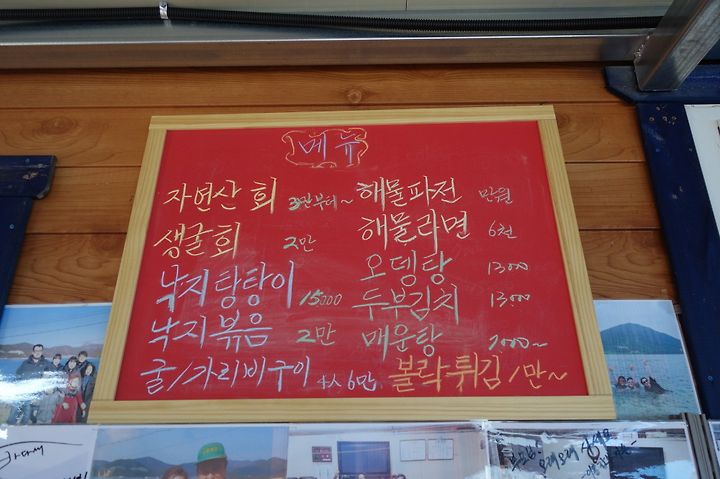 메뉴
자연산 회 3만부터~
생굴회 2만
낙지탕탕이 15000
낙지볶음 2만
굴/가리비구이 4人 6만
해물파전 만원
해물라면 6천
오뎅탕 13000
두부김치 13000
매운탕 7000~
볼락튀김 1만~
오래오래 사세요